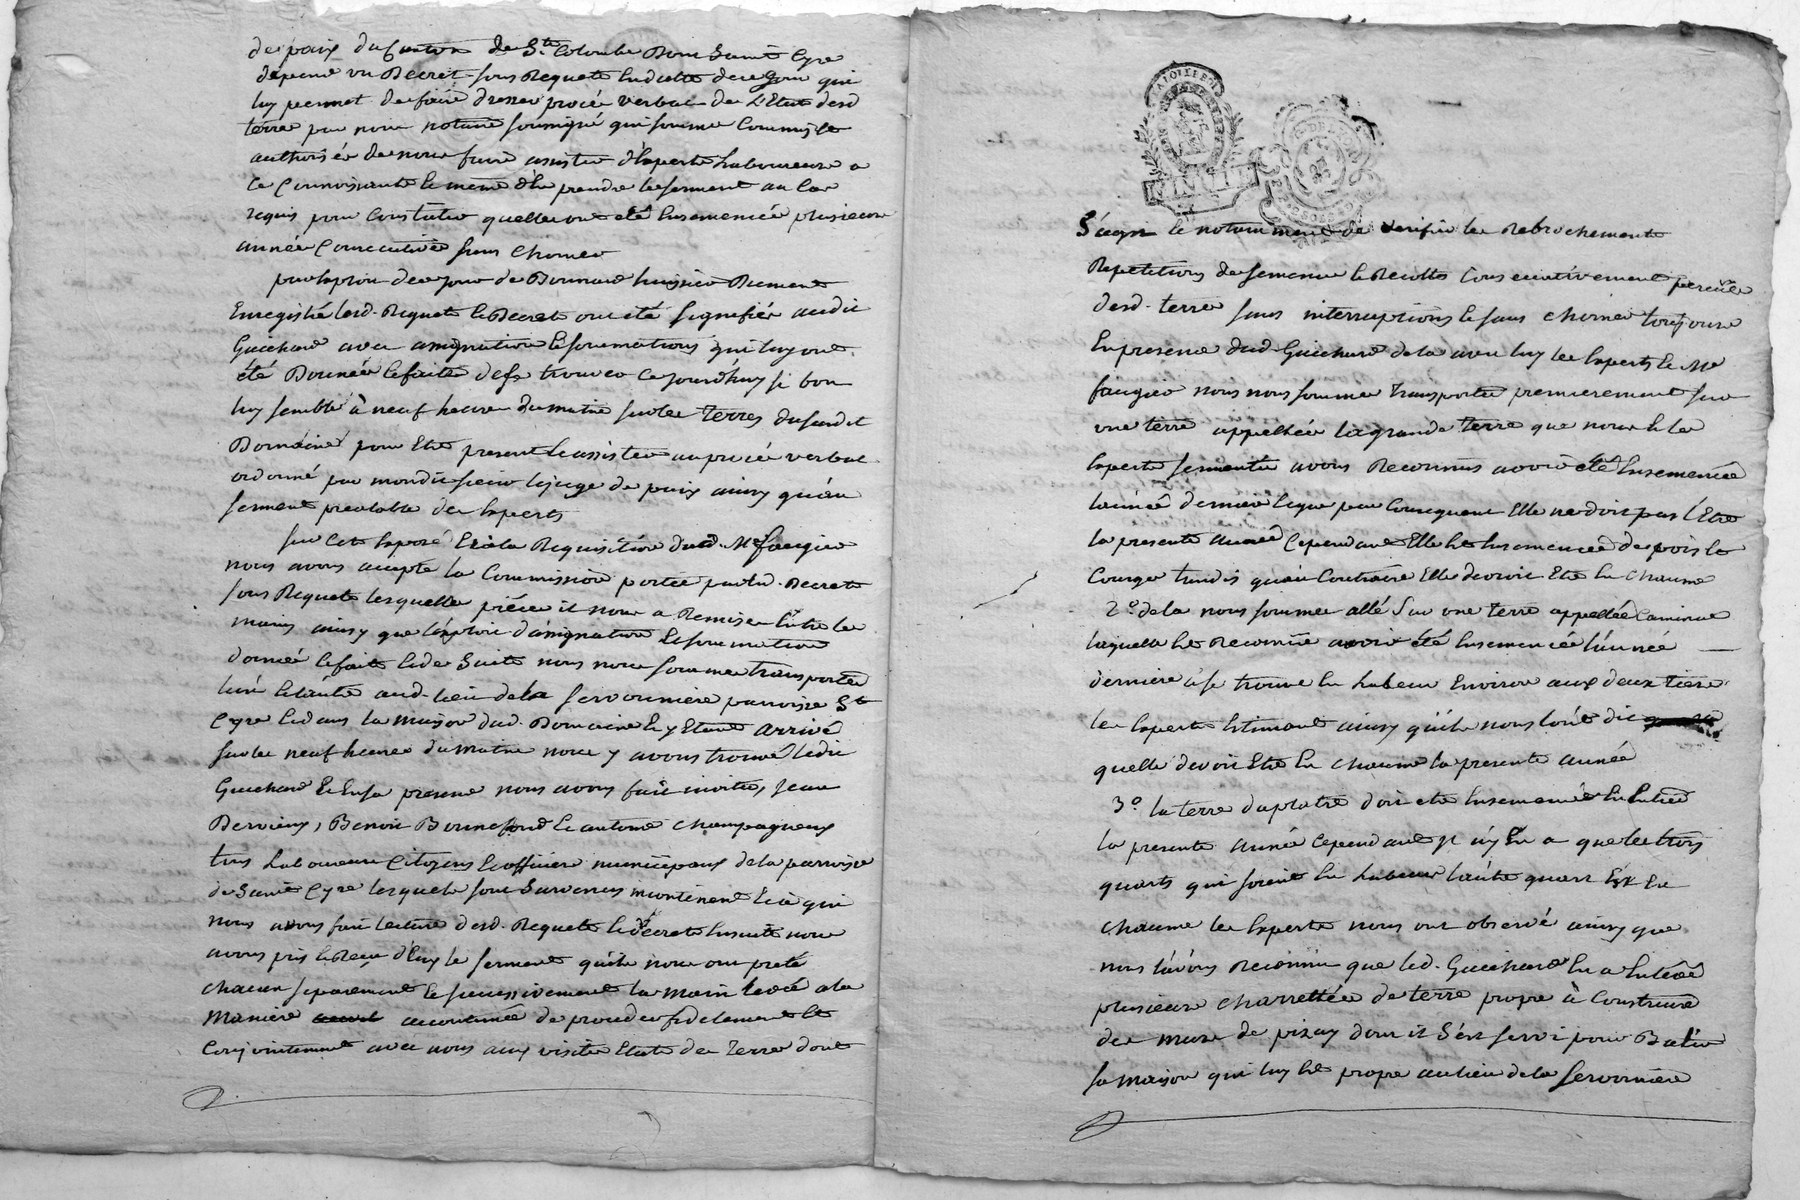 de paix du Canton de Ste Colombe Dont Saint Cyre
dépend un Decret sous Requete Endatte de ce jour qui
luy permet de faire dresser procée verbal de L'Etat desd
terre par nous notaire soussigné qui somme Commis &
authorisée de nous faire assister d'Experts Laboureurs a
Ce Connoissants & meme d'En prendre le serment au Cas
requis pour Constater quelles ont été Ensemencée plusieurs
année Consecutives sans Chomer
par Exploit de ce jour de Bonnard huissier
Enregistré lesd. Requete & Decret ont été signifiée audit
Guichard avec assignation & sommations qui luy ont
été Donnée & faite de se trouver Ce jourd'huy si bon
luy semble à neuf heure du matin sur les Terres du susdit
Domaine pour Etre present & assister au procée verbal
ordonné par mondit sieur le juge de paix ainsy qu'au
serment prealable des Experts
Sur Cet Exposé Et à la Requisition dud. Me faugier
nous avons accepté la Commission portée par led. Decret
sous Requete lesquelles piéce il nous a Remise Entre les
mains ainsy que l'Exploit d'assignation & sommation
donnée & faite & de Suite nous nous somme transportée
l'un & l'autre aud. lieu de la servonniere parroisse St
Cyre & dans la maison dud. Domaine & y Etant arrivé
sur les neuf heures du matin nous y avons trouvé ledit
Guichard & En sa presence nous avons fait inviter, Jean
Dervieux, Benoit Bonnefond & antoine Champagneux
tous Laboureurs Citoyens & officiers municipaux de la parroisse
de Saint Cyre lesquels sont Survenus incontinent & à qui
nous avons fait lecture desd. Requete & decret Ensuite nous
avons pris & Reçu d'Eux le serment qu'ils nous ont preté
chacun separement & successivement la main levée a la
maniere accoutumée de proceder fidelement &
Conjointement avec nous aux visite Etats des Terre dont
S'agit & notamment de verifier les Rebrochements
Repetitions de semence & Recolte Consecutivement percüe
desd. terre sans interruptions & sans chomer toujours
En presence dud. Guichard de la avec luy les Experts & Me
faugier nous nous somme transportée premierement sur
une terre appellée la grande Terre que nous & les
Experts sermentée avons Reconnus avoir été Ensemencée
l'année derniere & que par Consequent Elle ne doit pas l'Etre
la presente année Cependant Elle Est Ensemencée de pois &
Courge tandis qu'au Contraire Elle devroit Etre En Chaume
2° de la nous somme allé sur une terre appellée
laquelle Est Reconnue avoir été Ensemencée l'année
derniere & se trouve En Labeur Environ aux deux tiers
les Experts Estimant ainsy qu'ils nous l'ont dit
quelle devoit Etre En Chaume la presente année
3° la terre du platre doit etre Ensemencée En Entier
la presente année Cependant il n'y En a que les trois
quarts qui soient En Labeur l'autre quart Est En
chaume les Experts nous ont observé ainsy que
nous l'avons Reconnu que led. Guichard En a Enlevé
plusieurs charrettée de terre propre à Construire
des murs de pizay dont il s'est servi pour Batir
sa maison qui luy Est propre au lieu de la servonniere